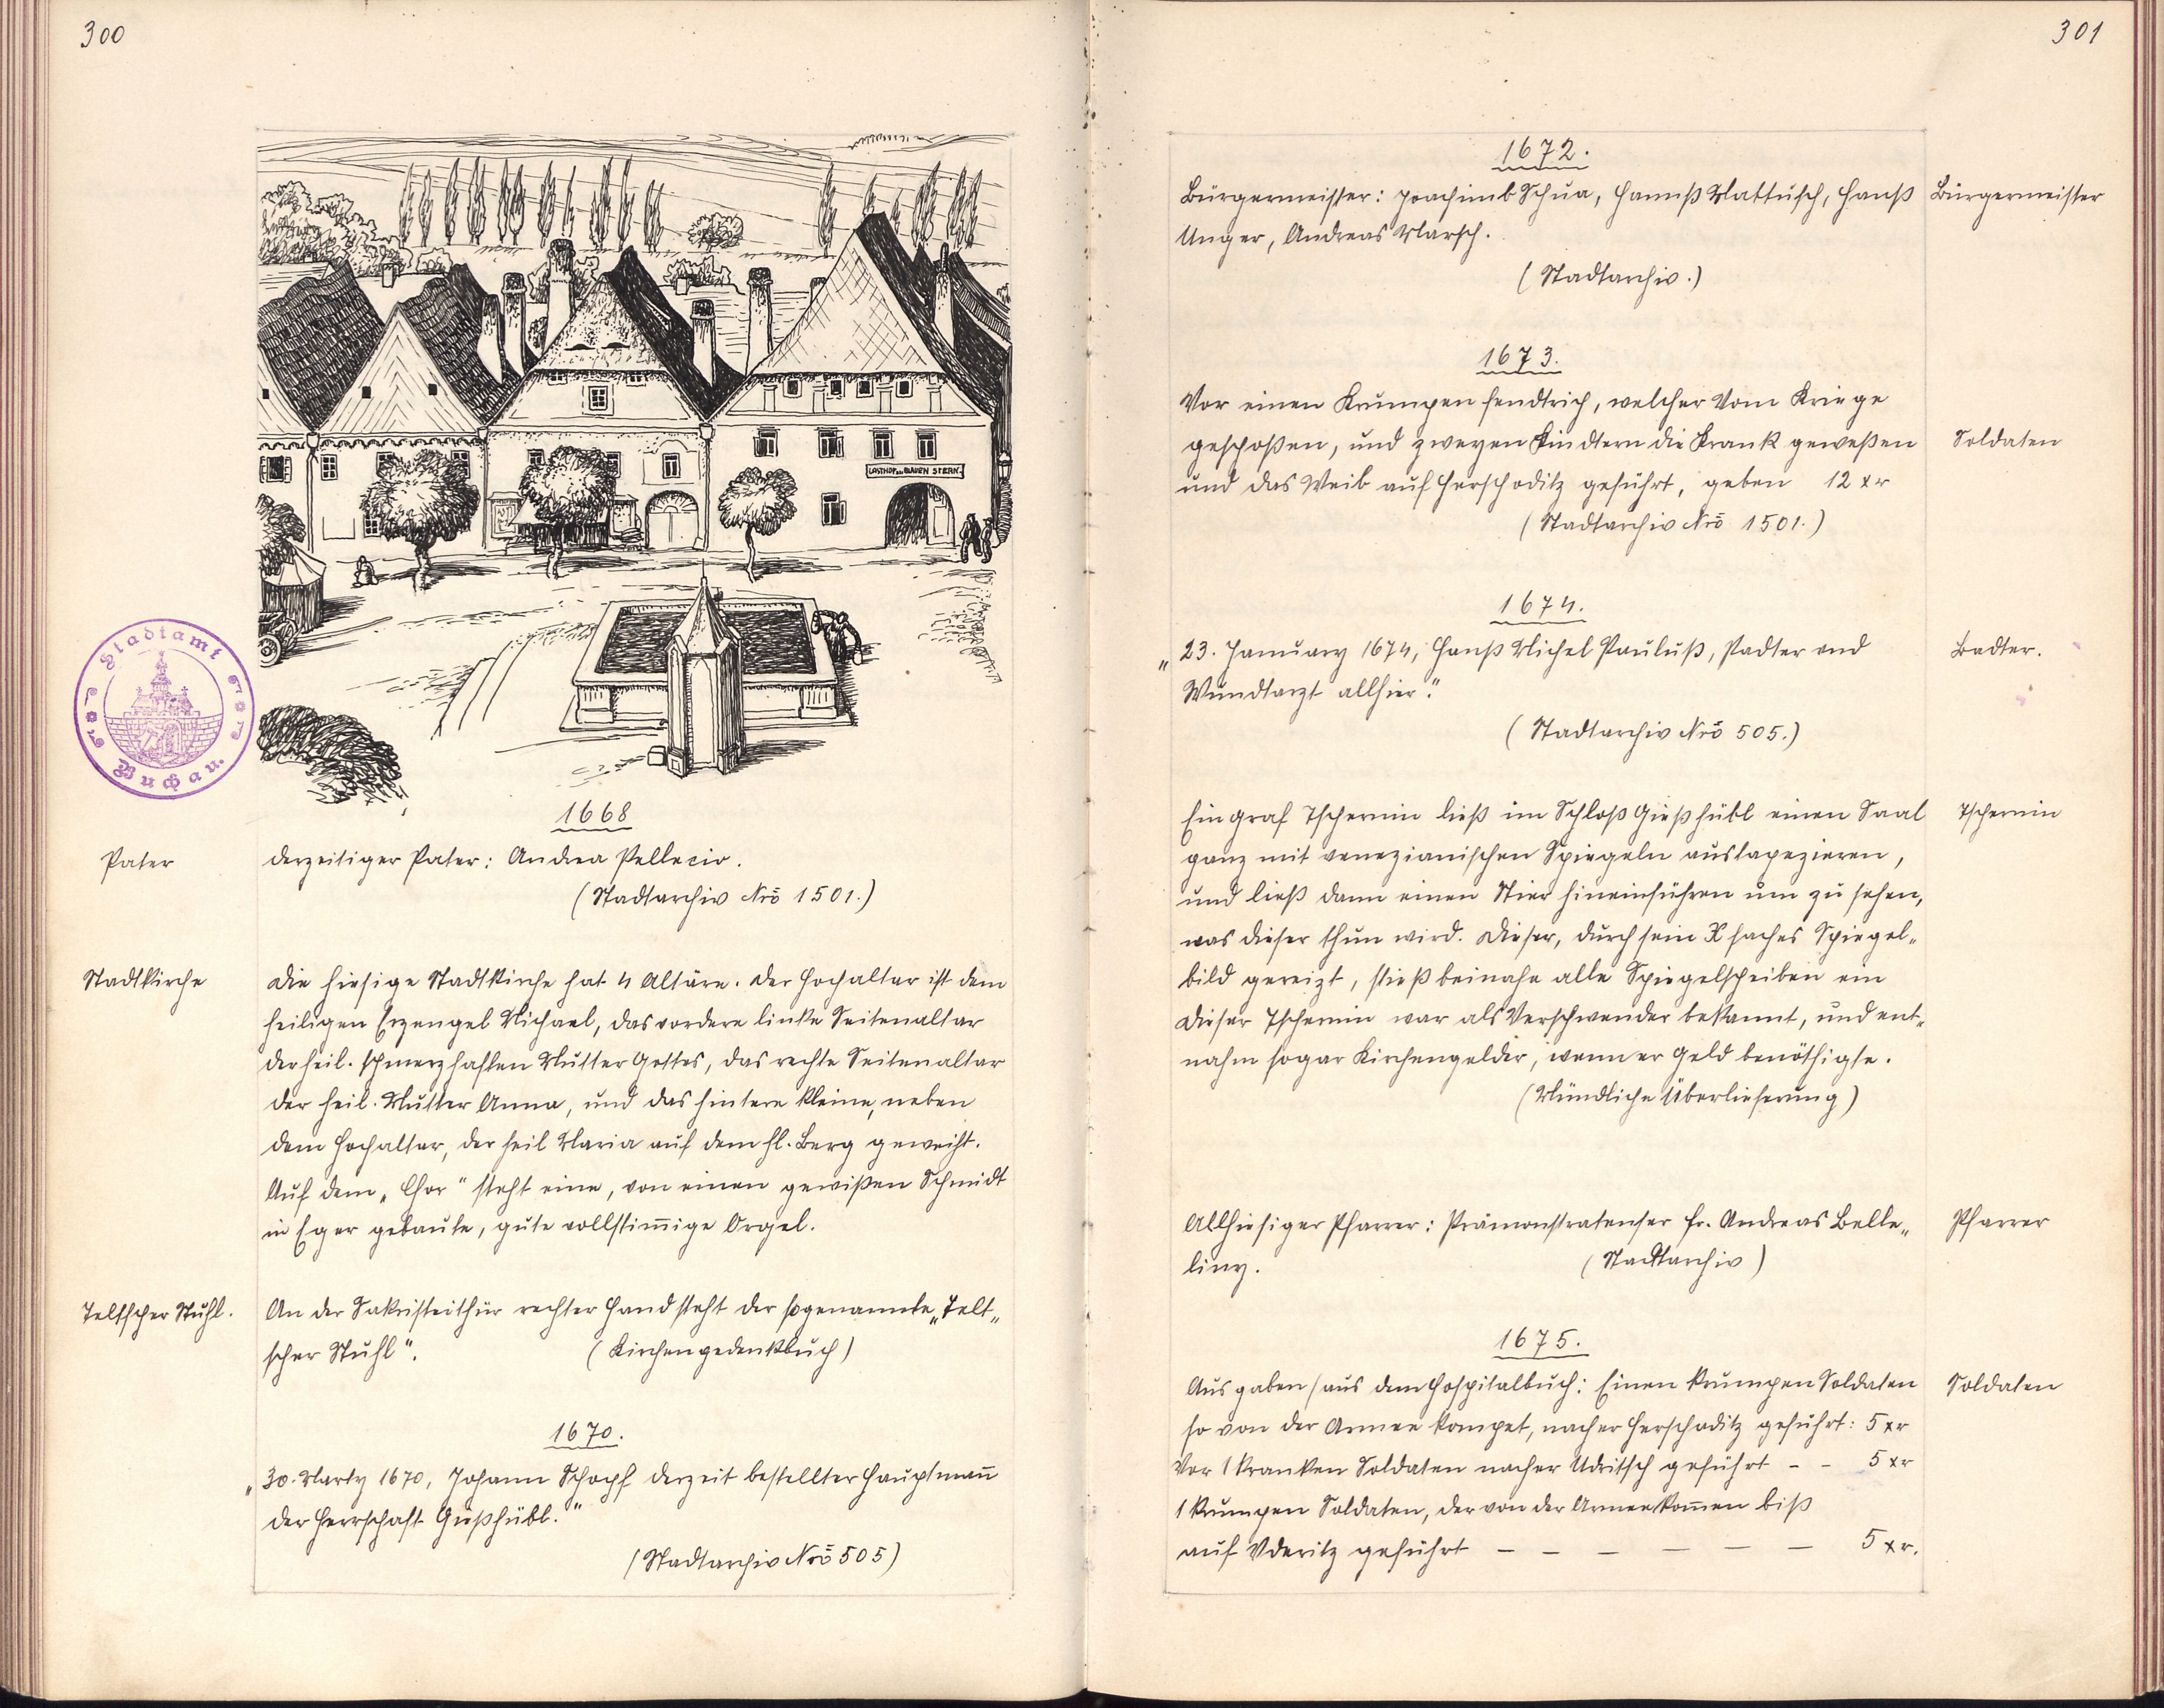 300
GASTHOF ZUM BLAUEN STERN.
Stadtamt
Buchau.
1668
Pater
derzeitiger Pater: Andrea Pellecio.
(Stadtarchiv Nrō 1501.)
Stadtkirche
Die hiesige Stadtkirche hat 4 Altäre. Der Hochaltar ist dem
heiligen Erzengel Michael, das vordere linke Seitenaltar
der heil. schmerzhaften Mutter Gottes, das rechte Seitenaltar
der heil. Mutter Anna, und das hintere kleine, neben
dem Hochaltar, der heil Maria auf dem hl. Berg geweiht.
Auf dem „Chor" steht eine, von einen gewißen Schmidt
in Eger gebaute, gute vollstim̄ige Orgel.
Teltscher Stuhl.
An der Sakristeithür rechter Hand steht der sogenannte „Telt„
scher Stuhl". (Kirchengedenkbuch)
1670.
„30. Marty 1670, Johann Schopf derzeit bestellter Hauptman̄
der Herrschaft Gießhübl."
(Stadtarchiv Nrō 505)
301
1672.
Bürgermeister: Joachimb Schua, Hannß Mattusch, Hanß
Unger, Andreas Marsch.
Bürgermeister
(Stadtarchiv.)
1673.
Vor einen Krumpen fendtrich, welcher Vom Kriege
geschoßen, und zweyen Kindtern die Krank geweßen
Soldaten
und das Weib auf Herschoditz geführt, geben 12 xr
(Stadtarchiv Nrō 1501.)
1674.
„23. January 1674, Hanß Michel Paulus, Padter und
Badter.
Wundtarzt allhier."
(Stadtarchiv Nrō 505.)
Ein Graf Tschernin ließ im Schloß Gießhübl einen Saal
Tschernin
ganz mit venezianischen Spiegeln austapezieren,
und ließ dann einen Stier hineinführen um zu sehen,
was dieser thun wird. Dieser, durch sein X faches Spiegel„
bild gereizt, stieß beinahe alle Spiegelscheiben ein
Dieser Tschernin war als Verschwender bekannt, und ent„
nahm sogar Kirchengelder, wenn er Geld benöthigte.
(Mündliche Überlieferung)
Allhiesiger Pfarrer: Prämonstratenser Fr. Andreas Belle„
Pfarrer
liny. (Stadtarchiv)
1675.
Ausgaben/aus dem Hospitalbuch: Einen krumpen Soldaten
Soldaten
so von der Armee kompet, nacher Herschoditz geführt: 5 xr
Vor 1 kranken Soldaten nacher Udritsch geführt – – 5 xr
1 krumpen Soldaten, der von der Armee kom̄en biß
auf Uderitz geführt – – – – – – 5 xr.